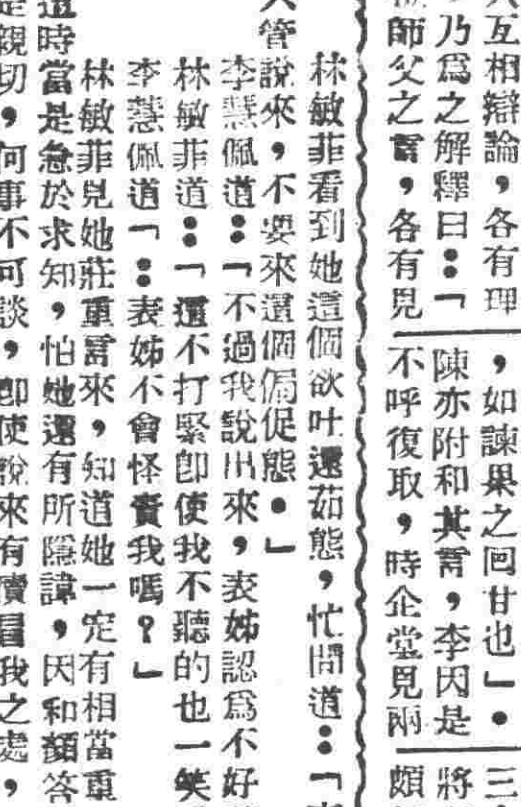 人互相辯論，各有理
乃爲之解釋曰：「
師父之言，各有見
，如諫果之回甘也」。
陳亦附和其言，李因是
不呼復取，時企堂見兩
三
將
頗
林敏菲看到她這個欲吐還茹態，忙問道：「
管說來，不要來這個侷促態。」
李慧佩道：「不過我說出來，表姊認爲不好
林敏菲道：「還不打緊卽使我不聽的也一笑
李慧佩道「：表姊不會怪責我嗎？」
林敏菲見她莊重言來，知道她一定有相當重
時當是急於求知，怕她還有所隱諱，因和顏答
親切，何事不可談，卽使說來有瀆冒我之處，